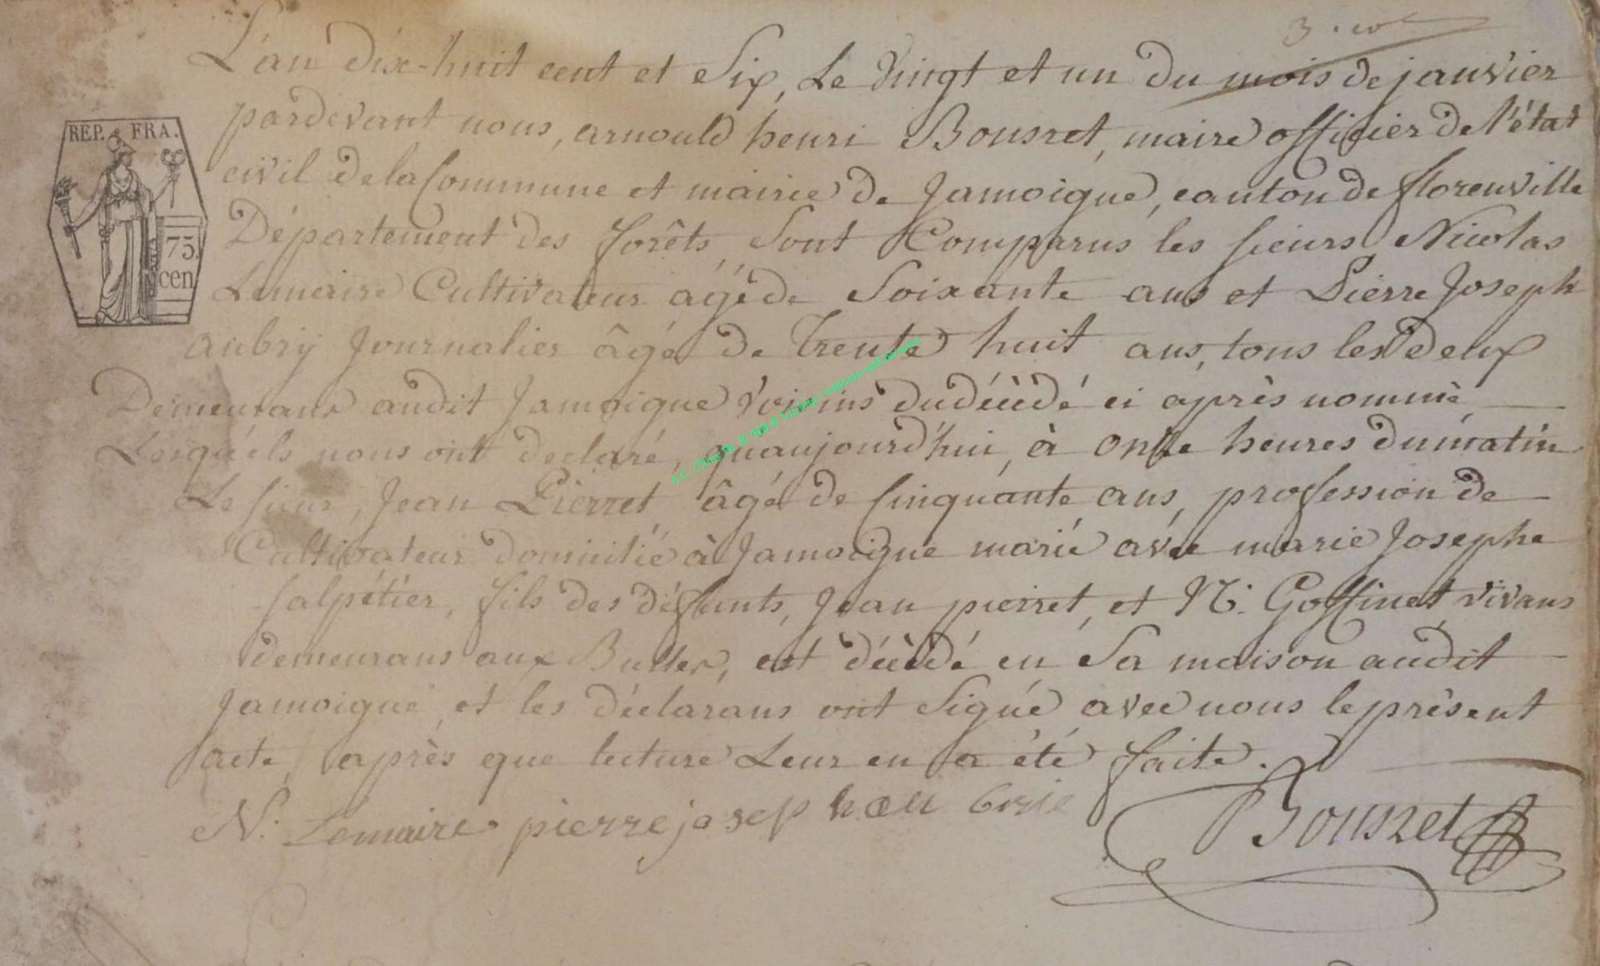 3. rol
L'an dix-huit cent et Six, Le Vingt et un du mois de janvier
pardevant nous, arnould henri Bousret, maire officier de l'état
civil de la Commune et mairie de Jamoigue, canton de florenville
Département des forêts, Sont Comparus les sieurs Nicolas
Lemaire Cultivateur âgé de Soixante ans et Pierre Joseph
aubry Journalier âgé de trente huit ans, tous les deux
Demeurans audit Jamoigue Voisins du décèdé ci après nommé
Lesquels nous ont declaré, qu'aujourd'hui, à onze heures du matin
Le sieur, Jean Pierret âgé de Cinquante ans, profession de
Cultivateur domicilié à Jamoigue marié avec marie Josephe
salpétier, fils des défunts, Jean pierret, et N. Goffinet, vivans
demeurans aux Bulles, est décèdé en Sa maison audit
Jamoigue, et les déclarans ont Signé avec nous le présent
acte, après que lecture Leur en a été faite.
N. Lemaire pierre joseph Bousret
REP. FRA.
75.
cen